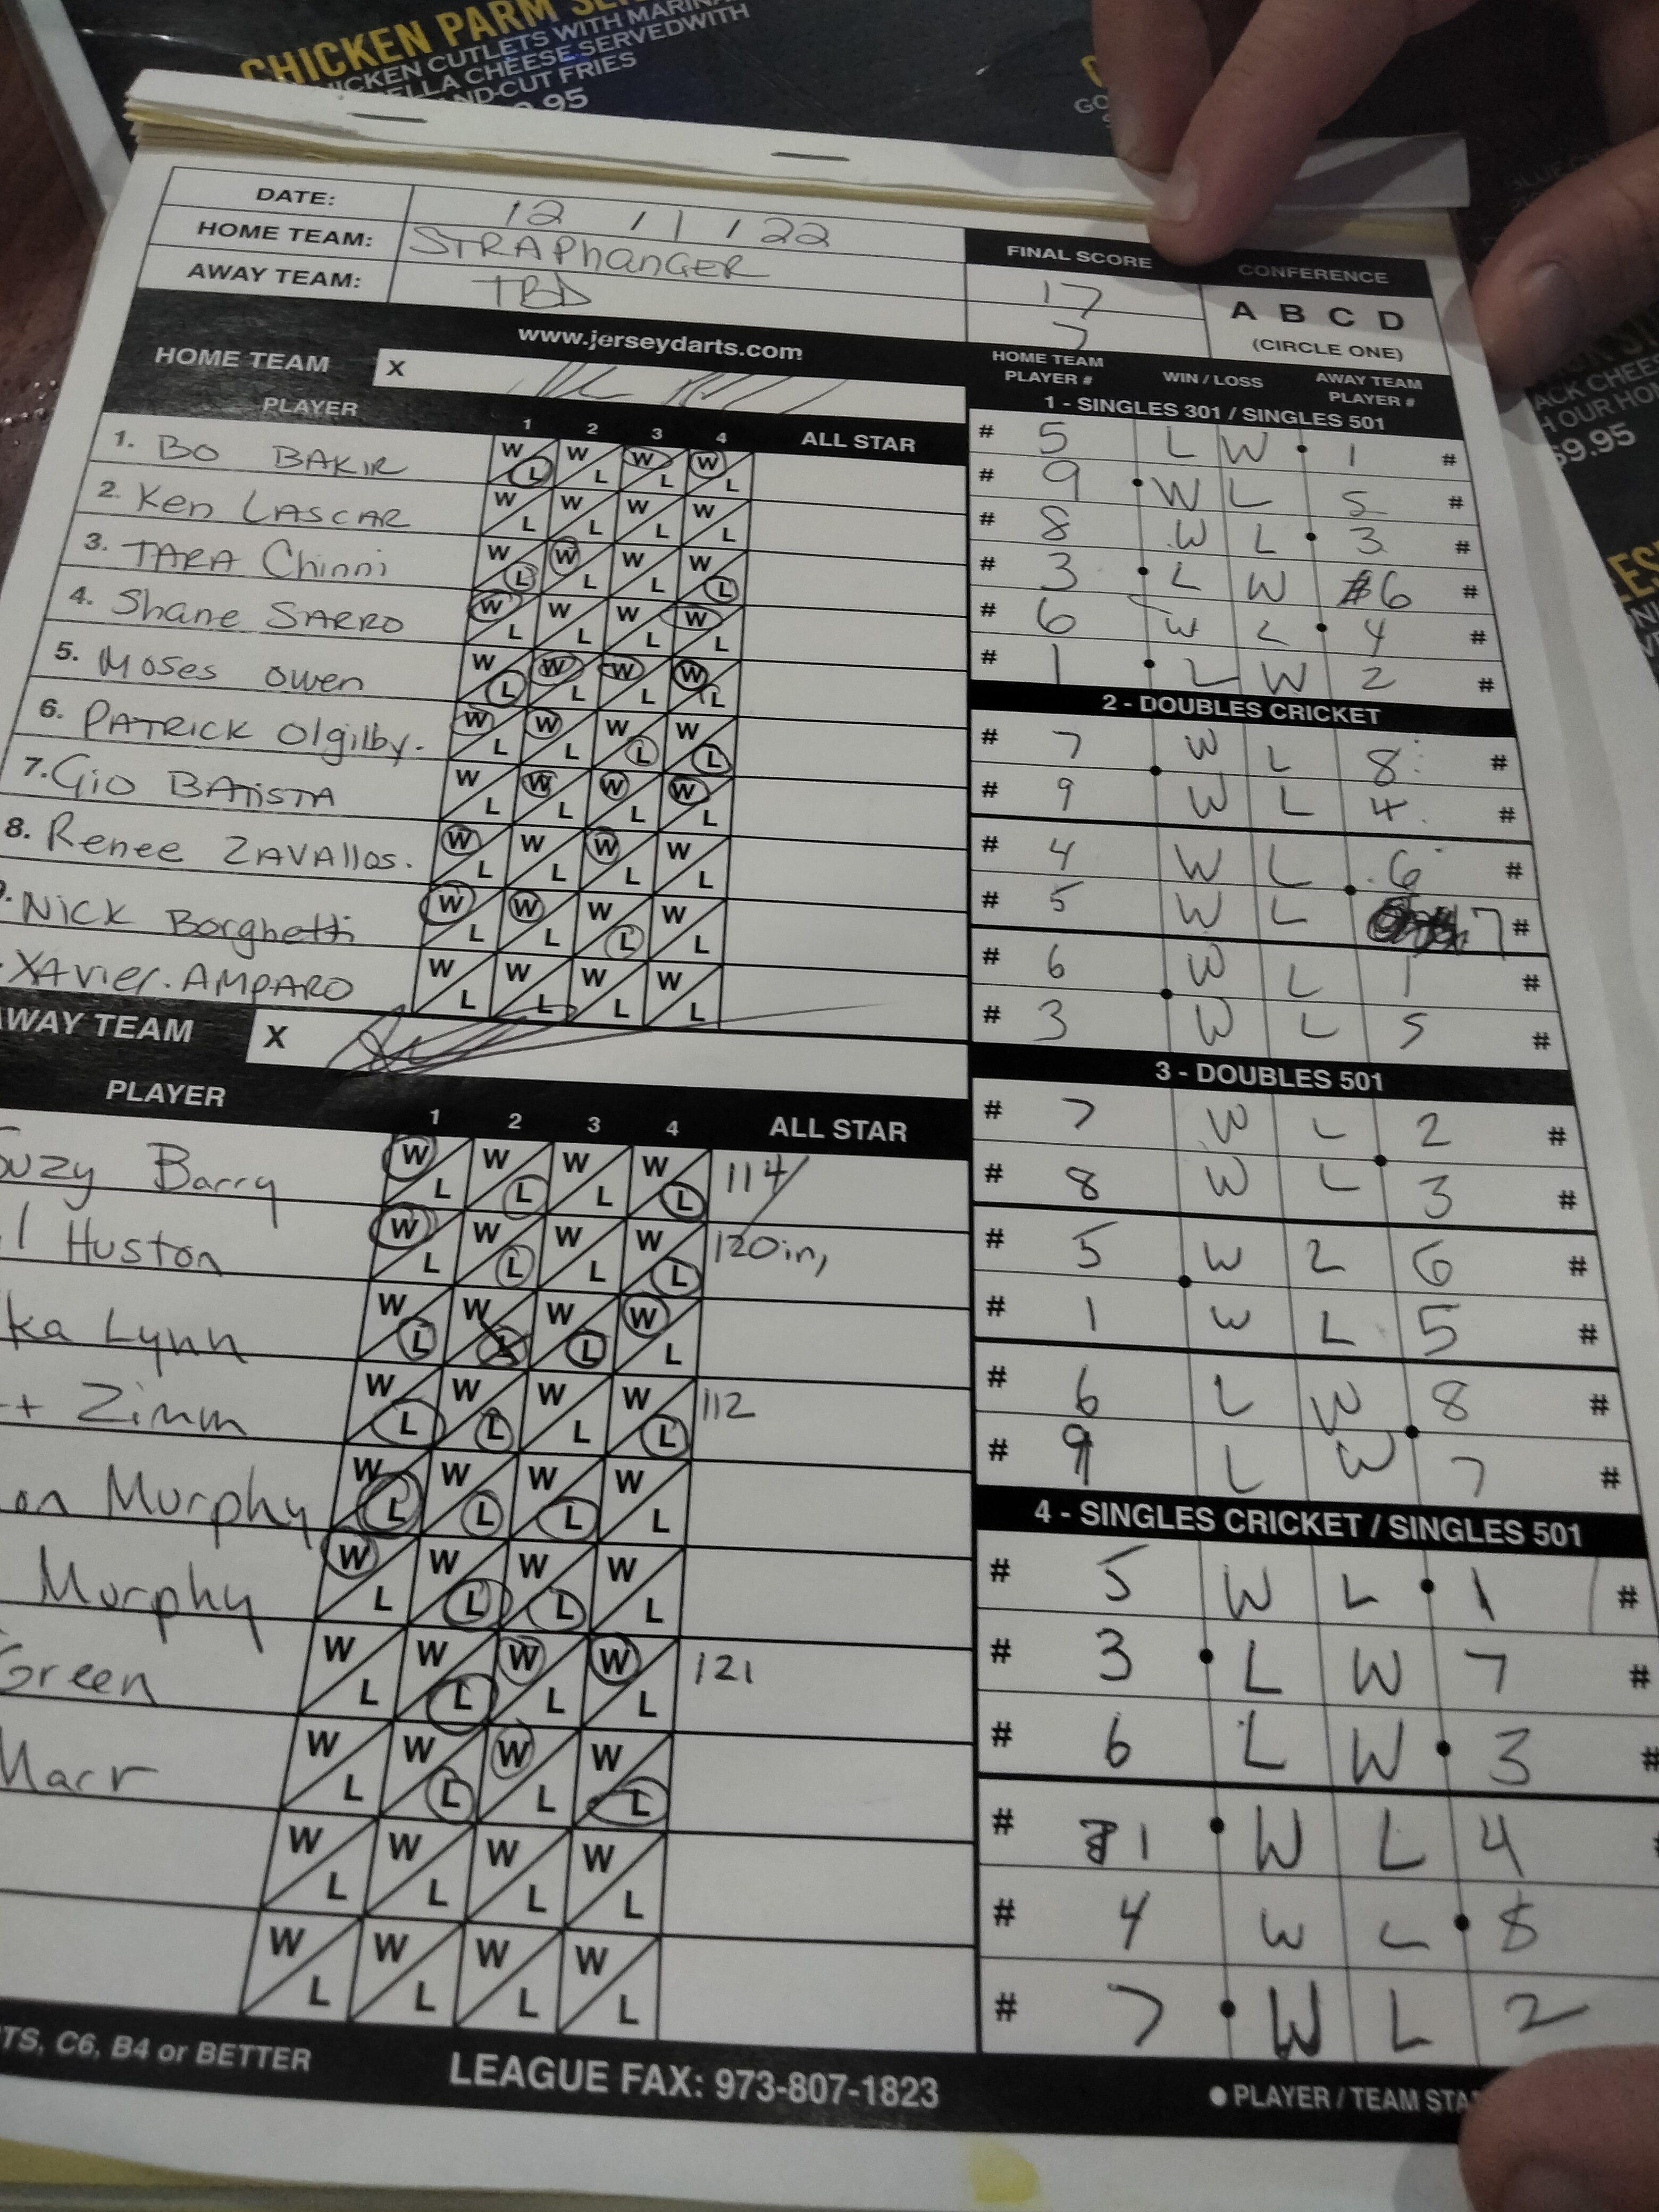 CHICKEN PARM
CHICKEN CUTLETS WITH MARIN
ELLA CHEESE SERVEDWITH
AND-CUT FRIES
.95
GO
ACK CHEES
H OUR HO
$9.95
DATE: 12 / 1 / 22
HOME TEAM: STRAPhanGER
AWAY TEAM: TBD
FINAL SCORE
17
7
CONFERENCE
A B C D
(CIRCLE ONE)
www.jerseydarts.com
HOME TEAM X
PLAYER 1 2 3 4 ALL STAR
1. BO BAKIR W L W L W L W L
2. Ken LASCAR W L W L W L W L
3. TARA Chinni W L W L W L W L
4. Shane SARRO W L W L W L W L
5. MOSES OWen W L W L W L W L
6. PATRICK Olgilby. W L W L W L W L
7. GiO BATiSTA W L W L W L W L
8. Renee ZAVAllos. W L W L W L W L
. NiCK Borghetti W L W L W L W L
. XAvier. AMPARO W L W L W L W L
AWAY TEAM X
PLAYER 1 2 3 4 ALL STAR
Suzy Barry W L W L W L W L 114
l Huston W L W L W L W L 120in,
ka Lynn W L W L W L W L
t Zimm W L W L W L W L 112
on Murphy W L W L W L W L
Murphy W L W L W L W L
Green W L W L W L W L 121
Marr W L W L W L W L
W L W L W L W L
W L W L W L W L
TS, C6, B4 or BETTER
LEAGUE FAX: 973-807-1823
HOME TEAM PLAYER # WIN / LOSS AWAY TEAM PLAYER #
1 - SINGLES 301 / SINGLES 501
# 5 L W 1 #
# 9 W L 5 #
# 8 W L 3 #
# 3 L W 6 #
# 6 W L 4 #
# 1 L W 2 #
2 - DOUBLES CRICKET
# 7 W L 8 #
# 9 W L 4 #
# 4 W L 6 #
# 5 W L 7 #
# 6 W L 1 #
# 3 W L 5 #
3 - DOUBLES 501
# 7 W L 2 #
# 8 W L 3 #
# 5 W L 6 #
# 1 W L 5 #
# 6 L W 8 #
# 9 L W 7 #
4 - SINGLES CRICKET / SINGLES 501
# 5 W L 1 #
# 3 L W 7 #
# 6 L W 3 #
# 1 W L 4
# 4 W L 8
# 7 W L 2
● PLAYER / TEAM STA